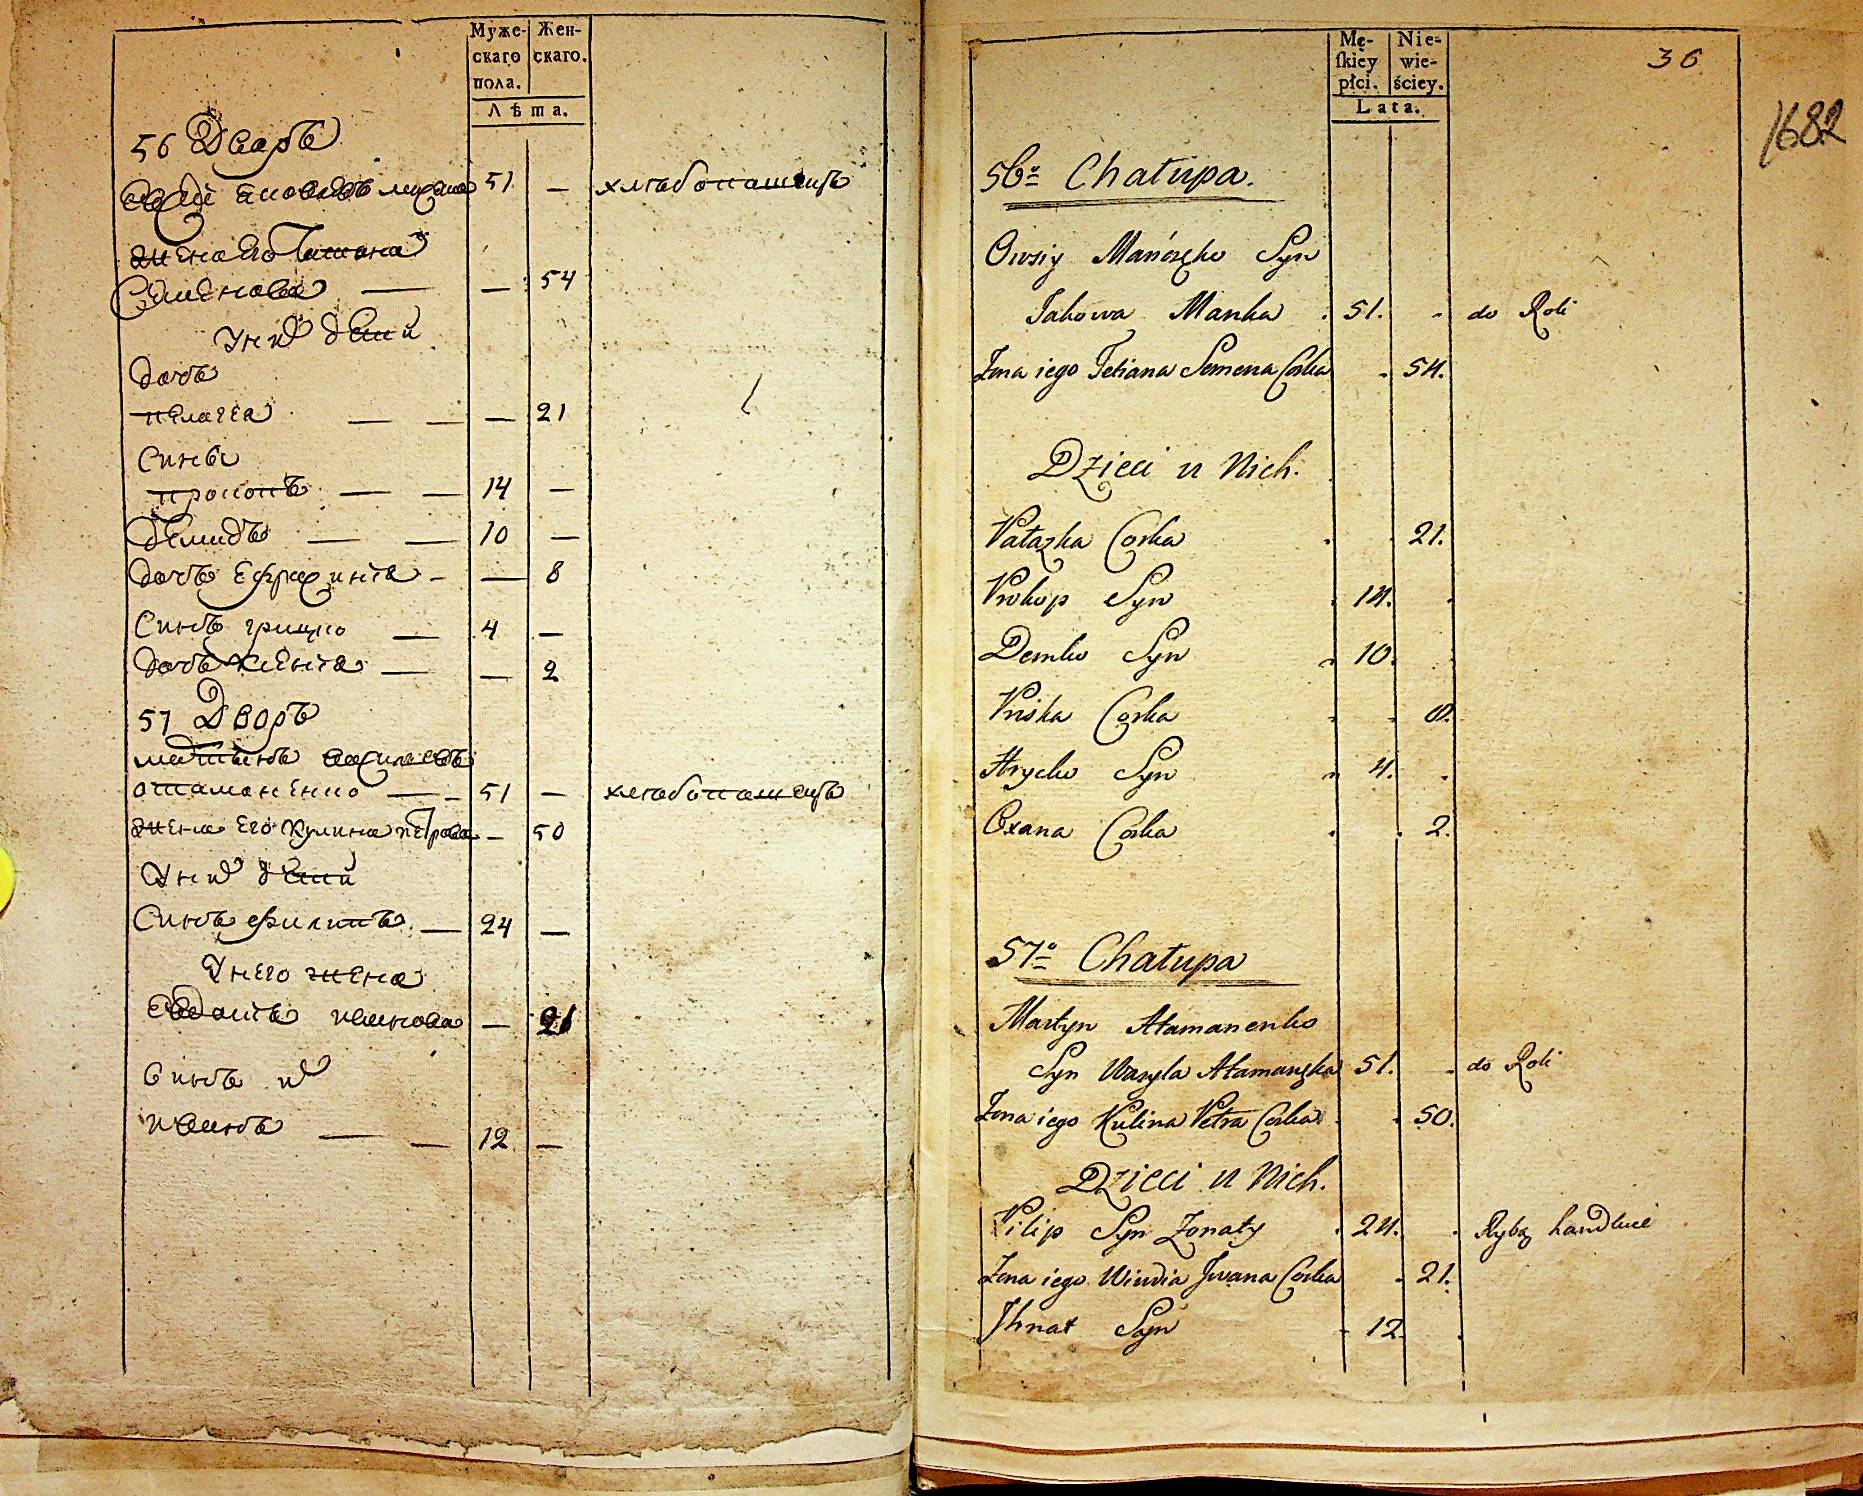 Муже-
скаго
пола.
Жен-
скаго.
Лѣта.
56 Дворъ
51 — хлебопашецъ
жена его Татяна
Семенова — — 54
Унихъ детй
дочъ
пелагея — — — 21
Синъ
прокопъ — — 14 —
Демидъ — — 10 —
дочъ Ефросиния — — 8
Синъ грицко — 4 —
дочъ — — 2
57 Дворъ
мартинъ васильевъ
отаманенко — — 51 — хлебопашецъ
жена его Кулина петрова — 50
Унихъ детй
Синъ филипъ — 24 —
Унего жена
иванова — 21
Синъ их
— — 12 —
Mę-
ſkiey
płci.
Nie-
wie-
ściey.
Lata.
36
1682
56º Chałupa.
Owsiy Syn
Jakowa Manka . 51. - do Roli
Zona iego Tetiana Semena Corka - 54.
Dzieci u Nich.
Pałazka Corka . . 21.
Prokop Syn . 14. .
Demko Syn 10.
Priska Corka - - 8.
Hrycko Syn 4. .
Oxana Corka . . 2.
57º Chałupa
Martyn Atamanenko
Syn Wasyla 51. - do Roli
Zona iego Kulina Petra Corka . . 50.
Dzieci u Nich.
Filip Syn Zonaty . 24. . Rybą handluie
Zona iego Iwana Corka - 21.
Ihnat Syn - 12. .